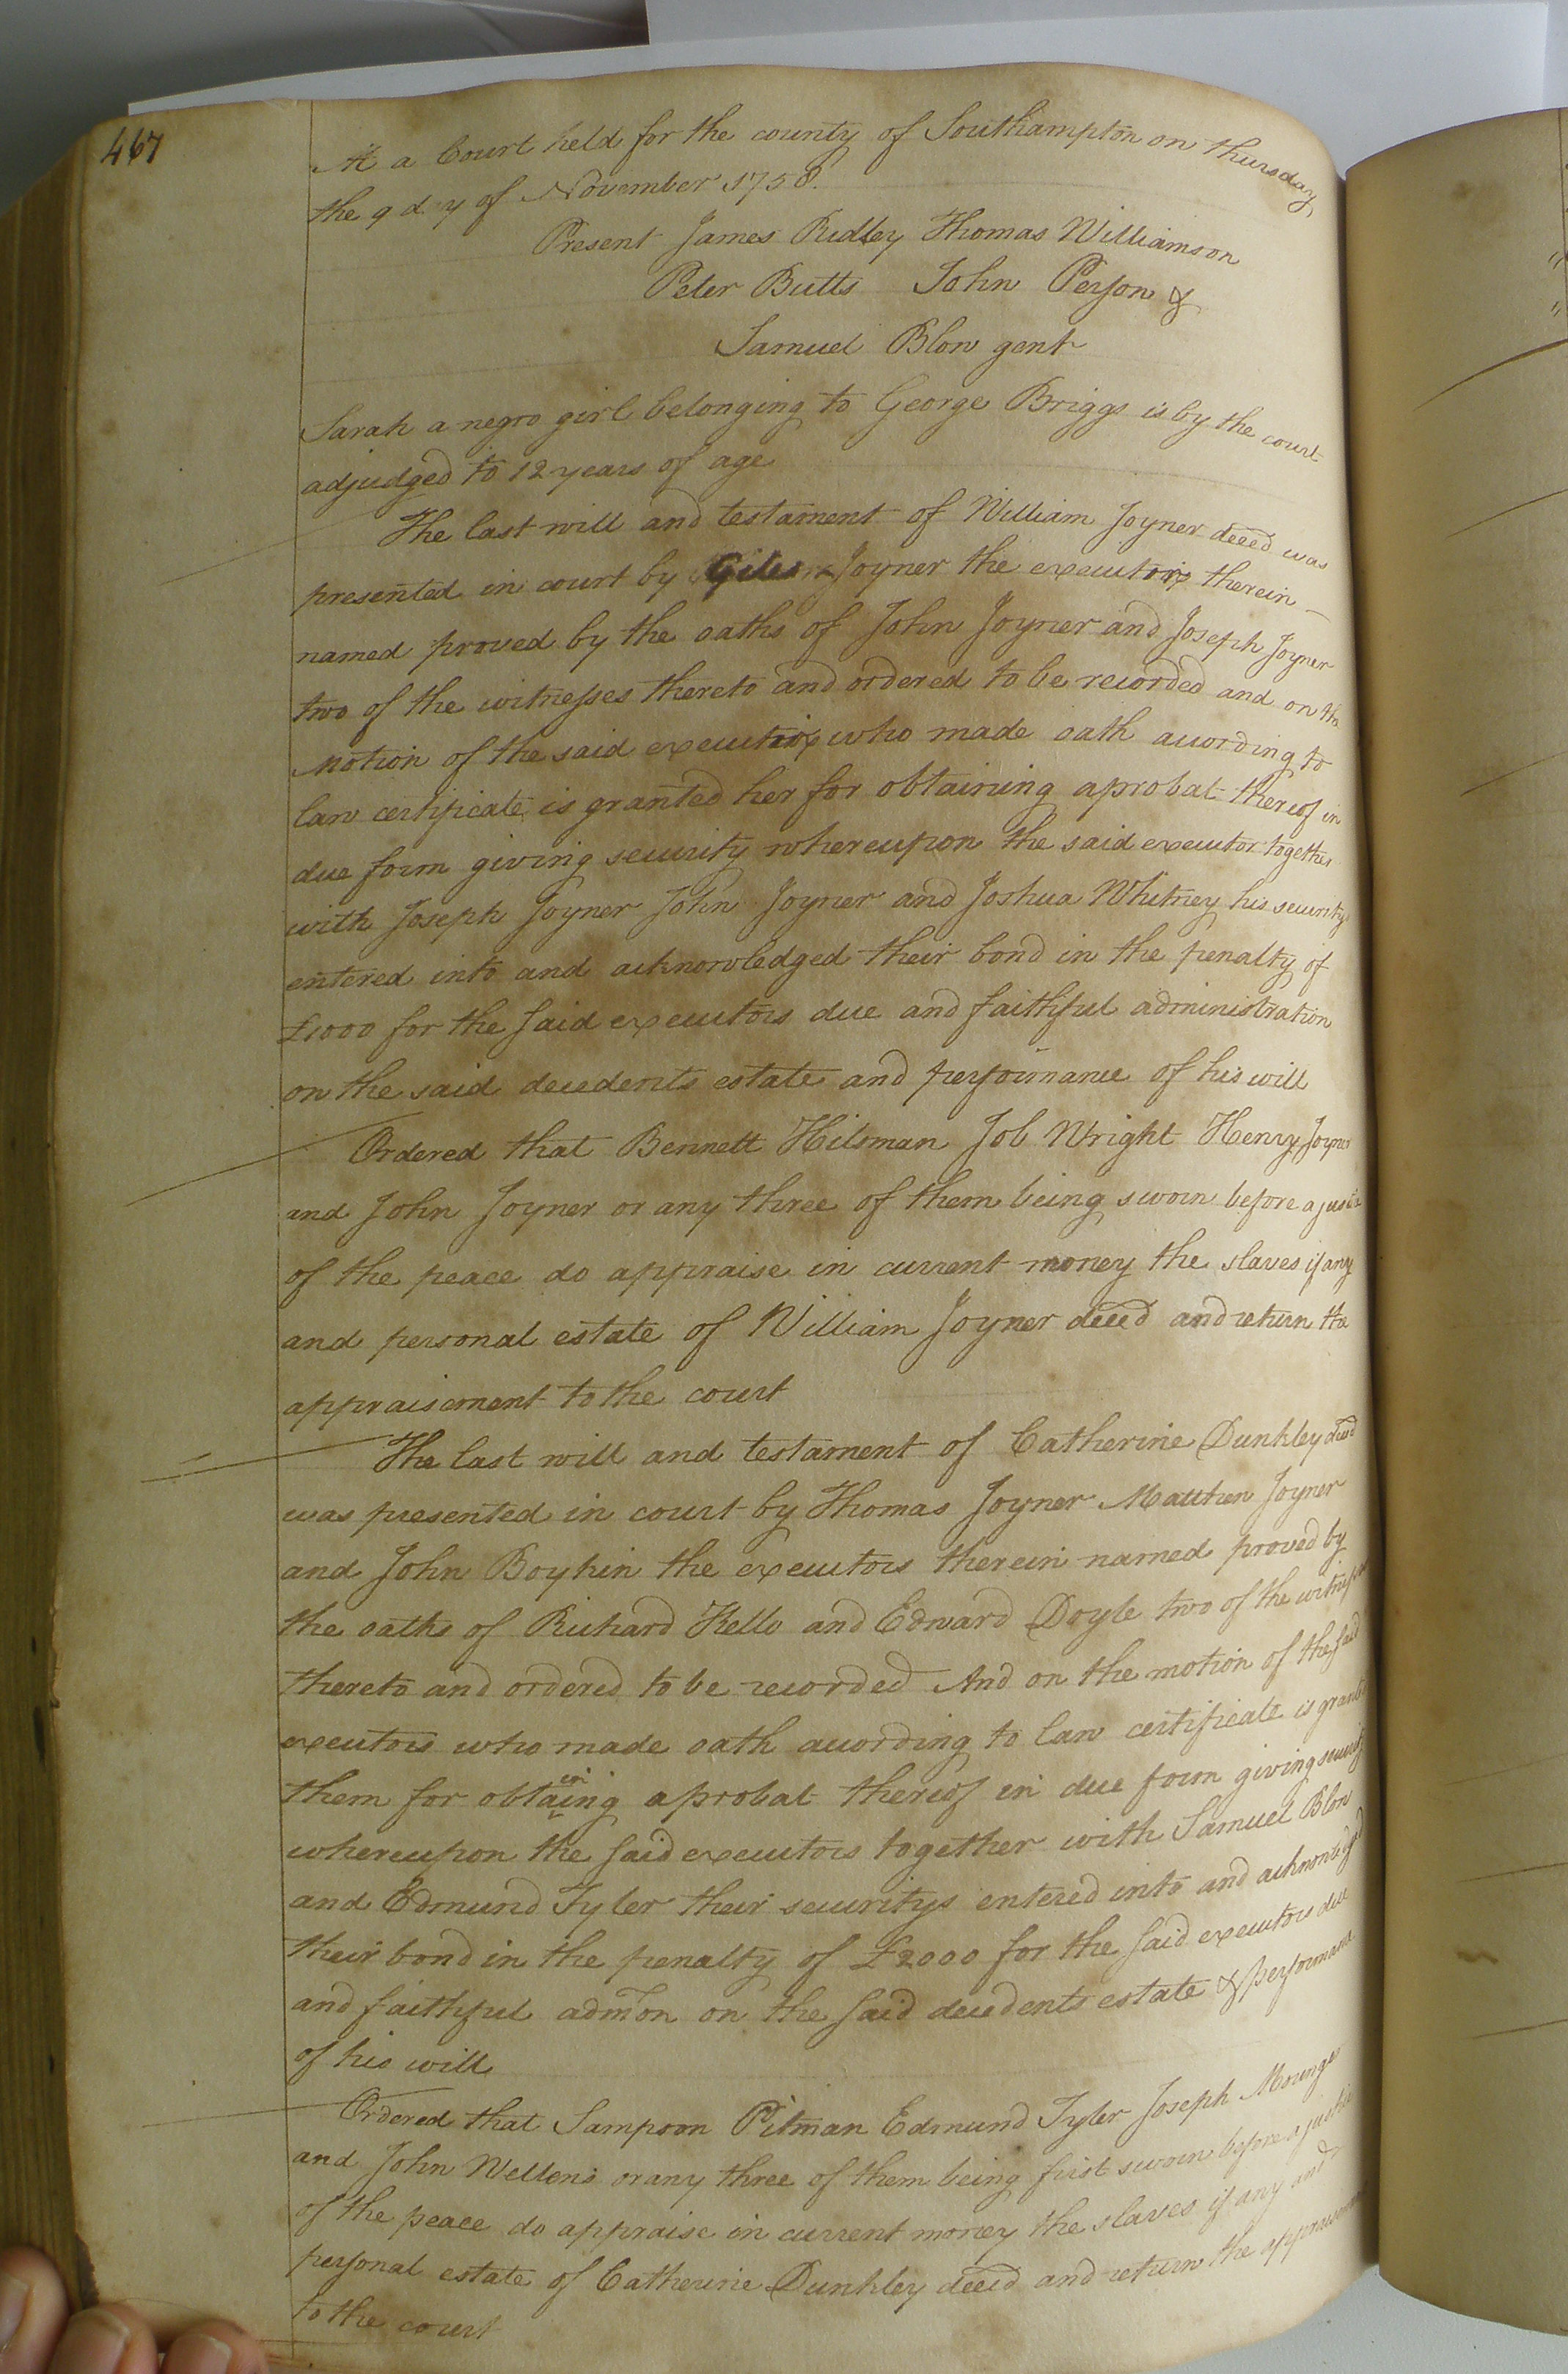 467
At a Court held for the county of Southampton on thursday
the 9 d y of November 1758.
Present James Ridley Thomas Williamson
Peter Butts John Person &
Samuel Blow gent
Sarah a negro girl belonging to George Briggs is by the court
adjudged to 12 years of age
The last will and testament of William Joyner deced was
presented in court by Giles Joyner the executrix therein
named proved by the oaths of John Joyner and Joseph Joyner
two of the witnesses thereto and ordered to be recorded and on the
Motion of the said executrix who made oath according to
law certificate is granted her for obtaining aprobat thereof in
due form giving security whereupon the said executor together
with Joseph Joyner John Joyner and Joshua Whitney his security
entered into and acknowledged their bond in the penalty of
£1000 for the said executors due and faithful administration
on the said decedents estate and performance of his will
Ordered that Bennett Hilsman Job Wright Henry Joyner
and John Joyner or any three of them being sworn before a justice
of the peace do appraise in current money the slaves if any
and personal estate of William Joyner deced and return the
appraisement to the court
The last will and testament of Catherine Dunkley deced
was presented in court by Thomas Joyner Matthew Joyner
and John Boykin the executors therein named proved by
the oaths of Richard Kello and Edward Doyle two of the witnesses
thereto and ordered to be recorded And on the motion of the said
executors who made oath according to law certificate is granted
them for obtaining aprobat thereof in due form giving security
whereupon the said executors together with Samuel Blow
and Edmund Tyler their securitys entered into and acknowledged
their bond in the penalty of £2000 for the said executors due
and faithful admon on the said decedents estate & performance
of his will
Ordered that Sampson Pitman Edmund Tyler Joseph Mounger
and John Wellons or any three of them being first sworn before a justice
of the peace do appraise in current money the slaves if any and
personal estate of Catherine Dunkley deced and return the appraisement
to the court